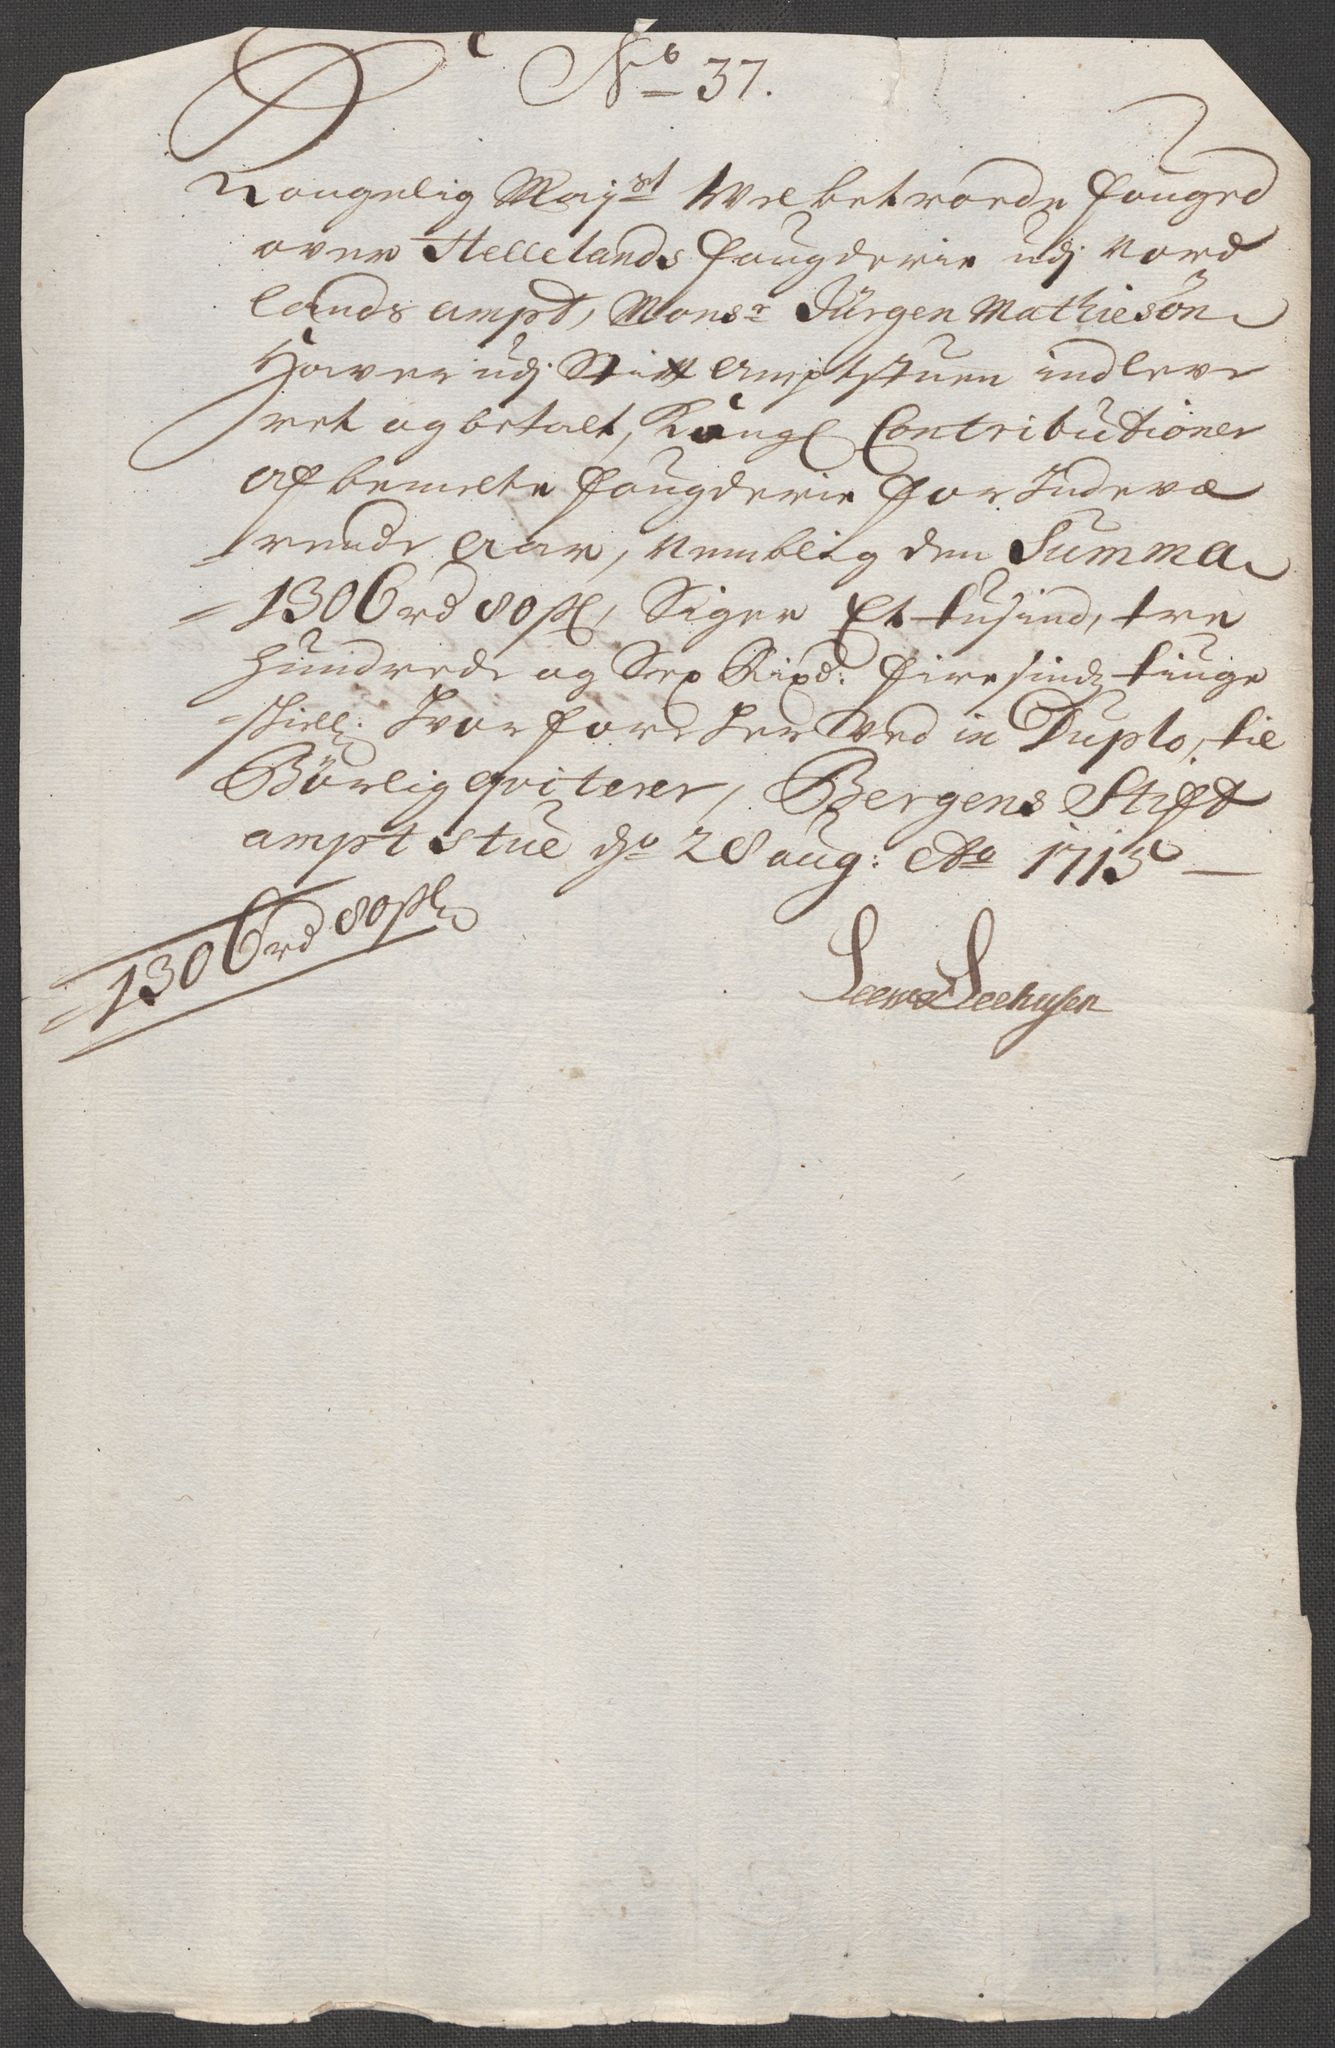 No 37.
Kongelig Mayst Welbetroede fouged
over Hellelands fougderie udj Nord
lands ampt, Monsr Jürgen Mathiesön
Haver udj Stift amptstuen indleve
ret og betalt, Kongl Contributioner
af bemelte fougderie for Indevæ
rende Aar, nemblig den Summa
1306 rd 80 sl, Siger Et tusind, tre
hundrede og Sex Rixd: firesindz tiuge
skill: Hvorfore her Ved in Duplo, til
Börlig qviterer, Bergens Stift
ampt stue do 28 aug: Ao 1715
1306 rd 80 sl
Seehusen